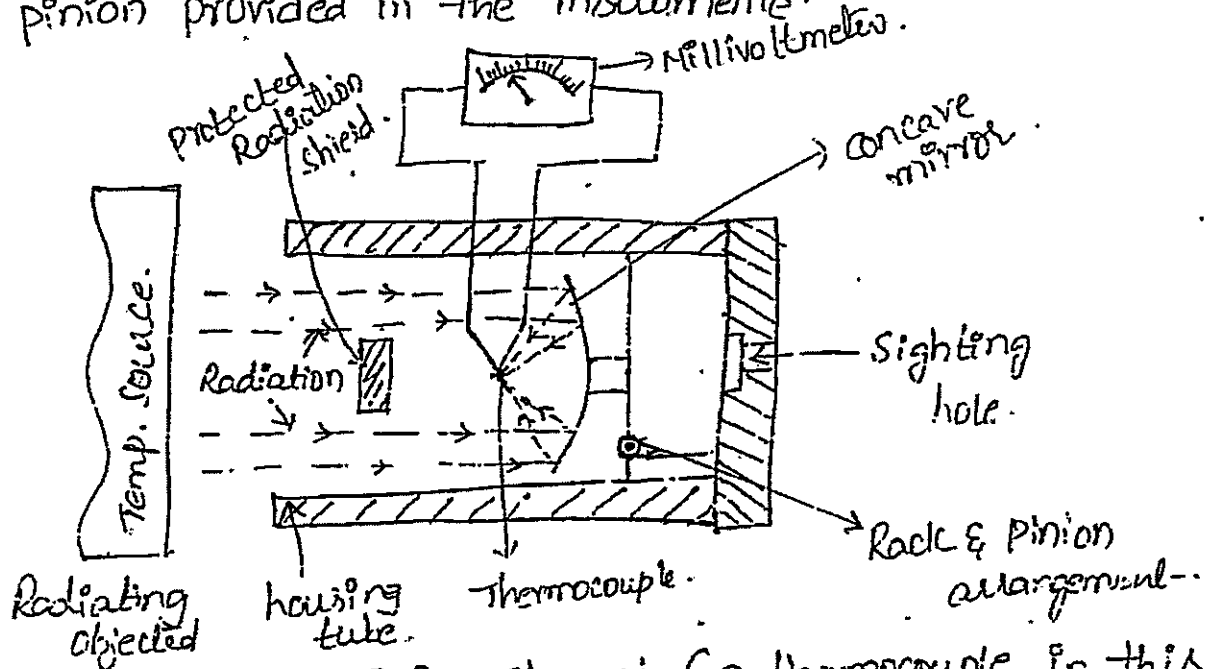 pinion provided in the instrumente.
Millivoltmeter.
protected
Radiation
shield.
concave
mirror.
Temp. Source.
Radiation
Sighting
hole.
Rack & pinion
arrangement-.
Radiating
objected
housing
tube.
Thermocouple.
thermocouple in this